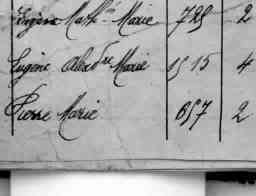 Eugène Math. Marie 725 2
Eugène Alexdre Marie 1515 4
Pierre Marie 857 2